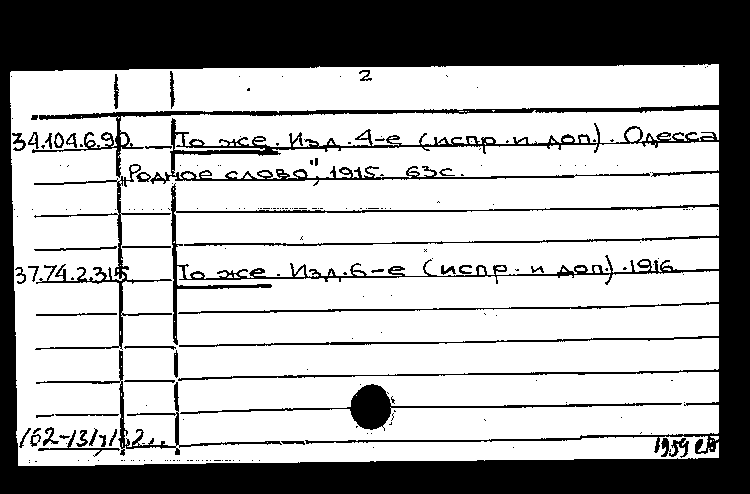 2
34.104.6.90. То же. Изд. 4-е (испр. и доп.). Одесса
„Родное слово", 1915. 63с.
37.74.2.315. То же. Изд. 6-е (испр. и доп.). 1916.